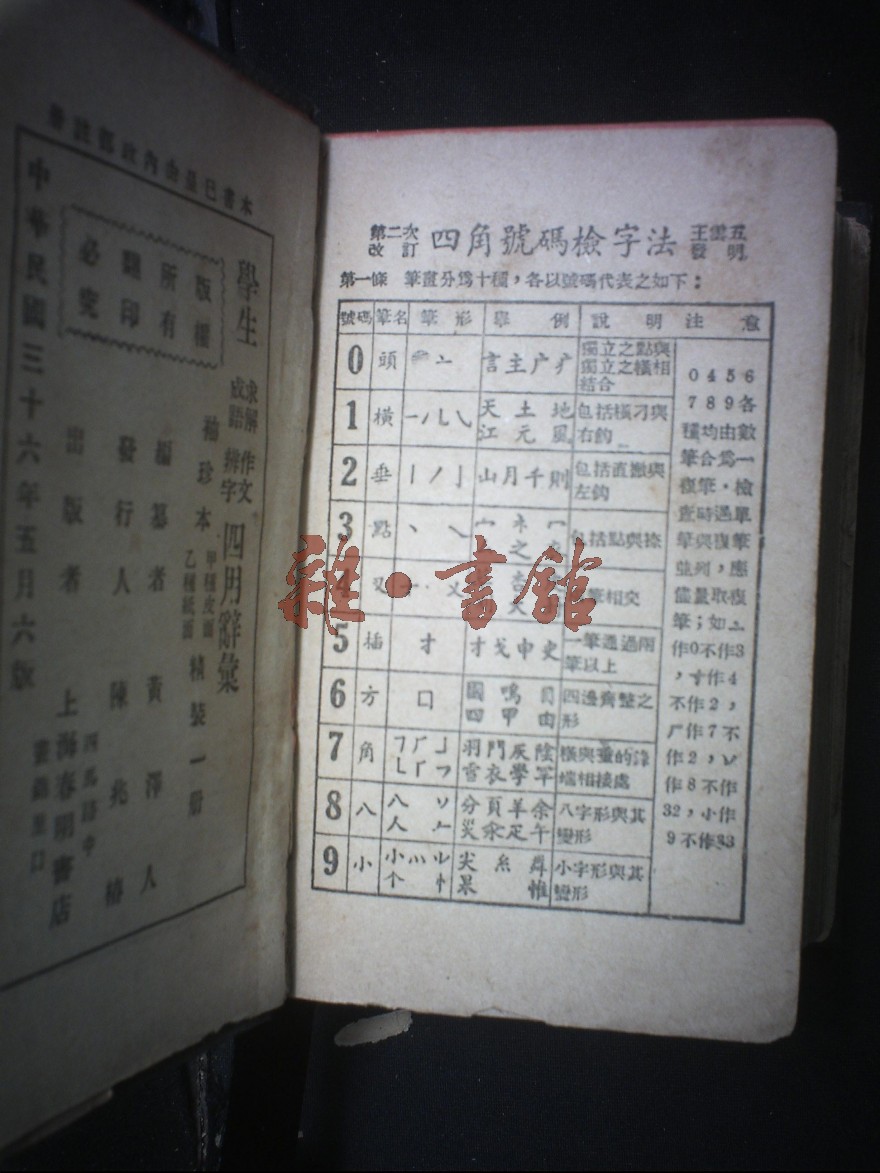 本書已呈內政部註冊
學生
求解 作文
成語 辨字
四用辭彙
袖珍本
甲種皮面
乙種紙面
精裝一册
版權
所有
翻印
必究
編纂者 黃澤人
發行人 陳兆椿
出版者 上海春明書店
四馬路中
中華民國三十六年五月六版
第二次
改訂
四角號碼檢字法
王雲五
發明
第一條 筆畫分爲十種，各以號碼代表之如下：
號碼 筆名 筆形 舉例 說明 注意
0 頭 亠 言主广疒 獨立之點與獨立之橫相結合
1 橫 一㇀乚㇂ 天土地江元風 包括橫刁與右鈎
2 垂 丨丿亅 山月千則 包括直撇與左鈎
3 點 丶㇏ 宀礻冖之 包括點與捺
4 叉 十乂 筆相交
5 插 扌 才戈申史 一筆通過兩筆以上
6 方 口 國鳴目四甲由 四邊齊整之形
7 角 羽門灰陰雪衣學罕 橫與垂的鋒端相接處
8 八 八丷人𠂉 分頁羊余災汆足午 八字形與其變形
9 小 小⺌忄 尖糸舜杲惟 小字形與其變形
0 4 5 6
7 8 9 各
種均由數
筆合爲一
複筆。檢
查時遇單
筆與複筆
並列，應
儘量取複
筆；如亠
作0不作3
，寸作4
不作2，
厂作7不
作2，丷
作8不作
32，小作
9不作33
雜·書館